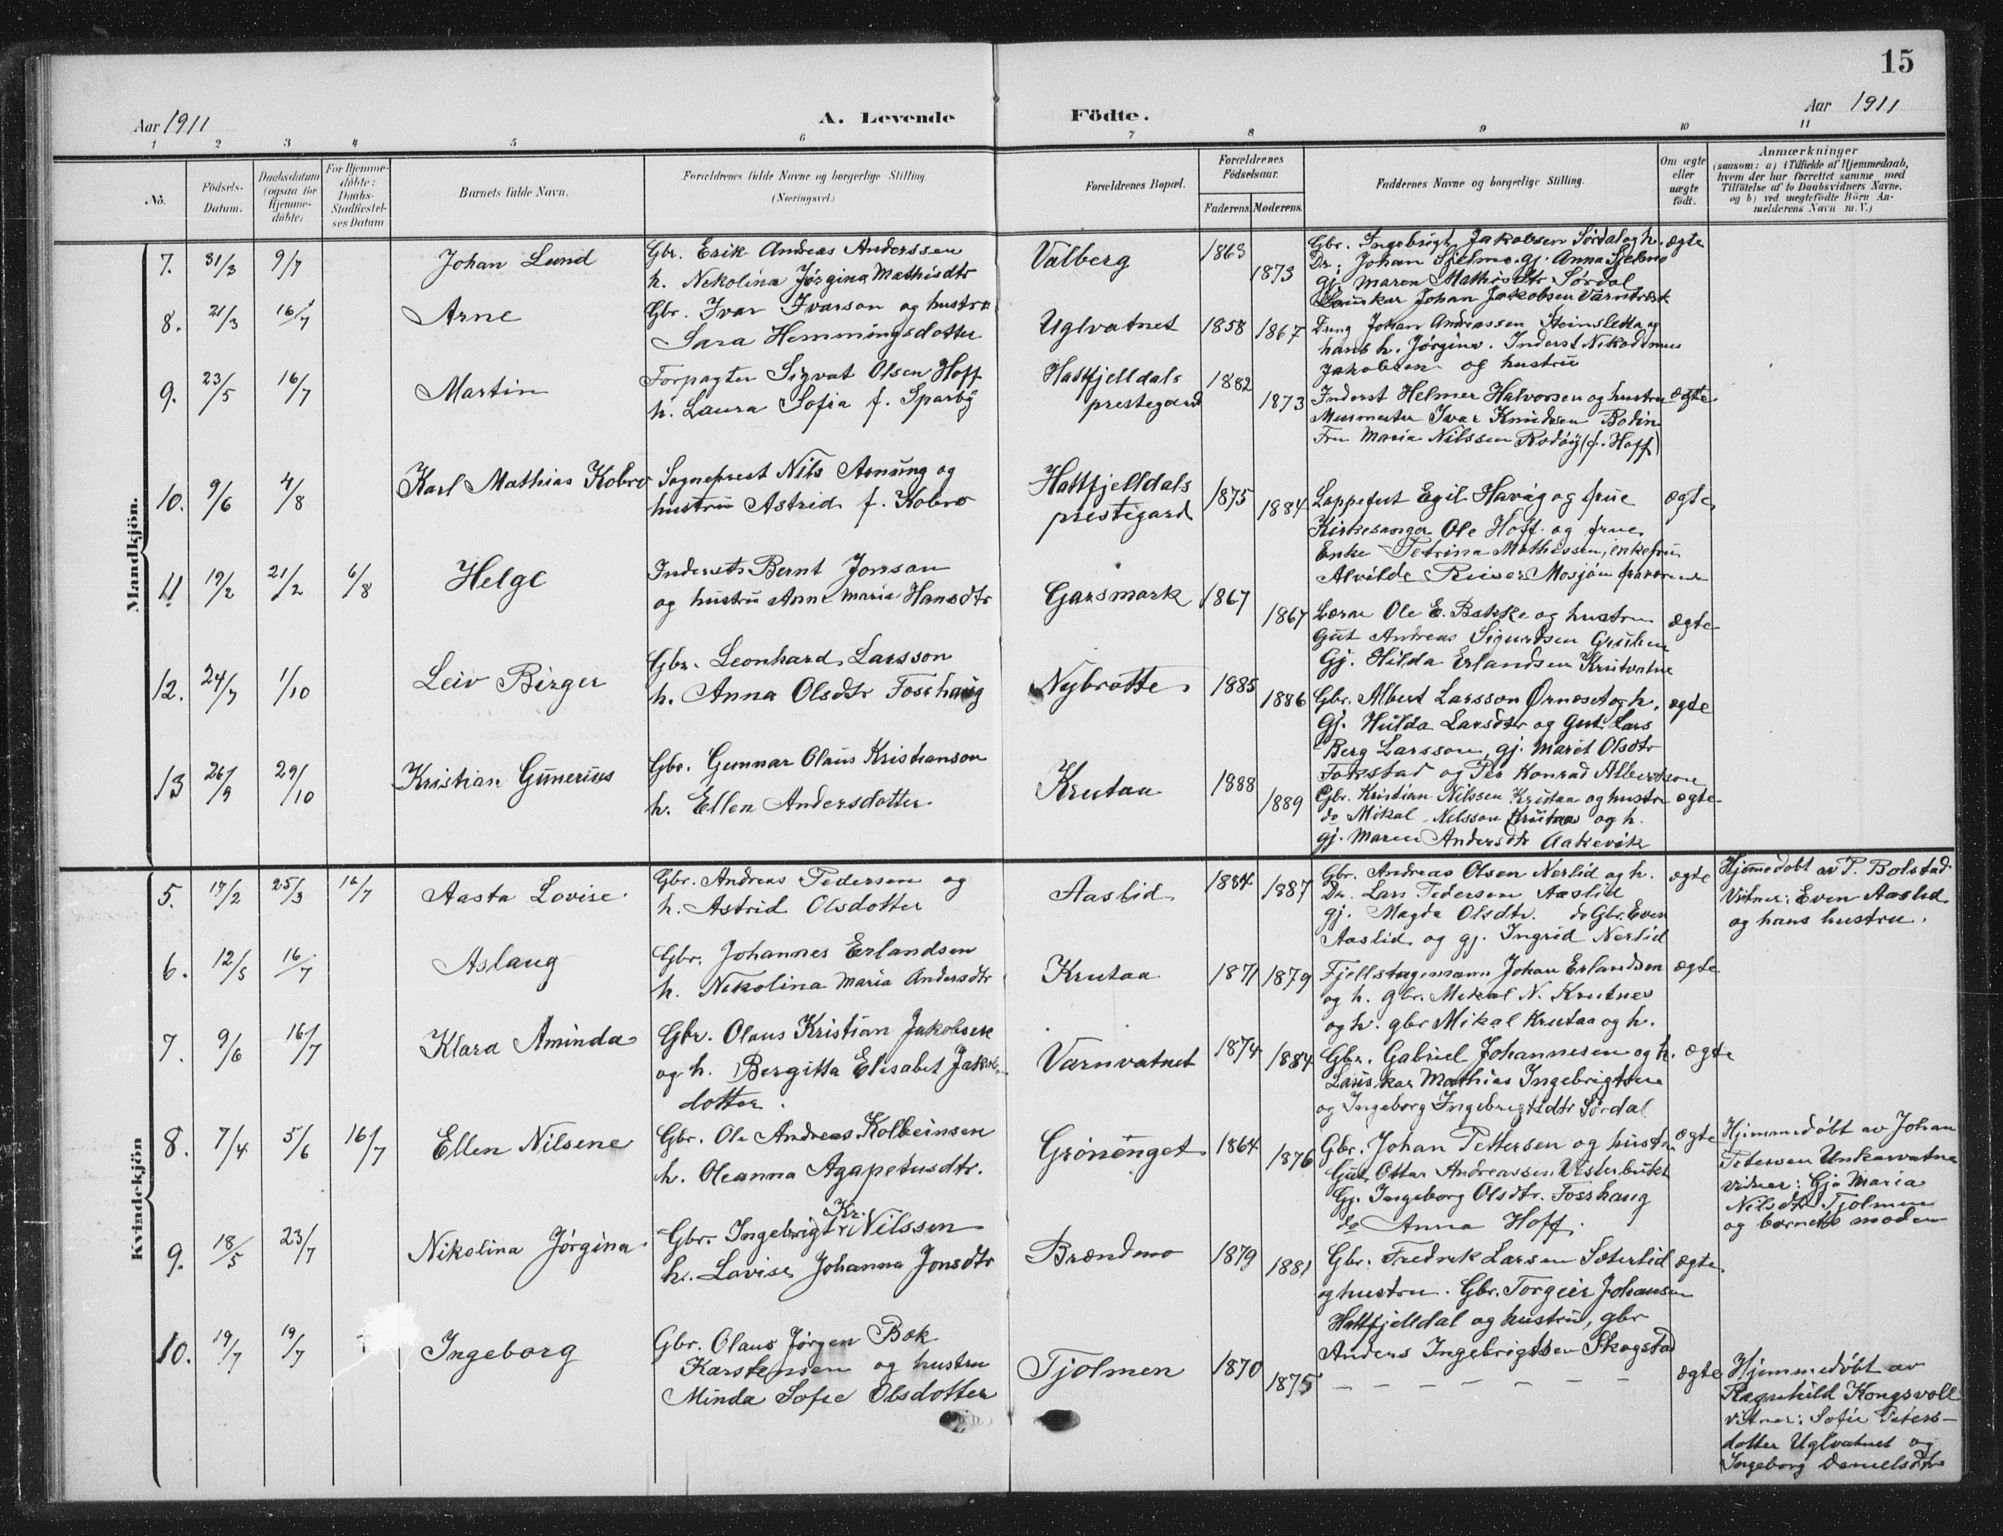 15
Aar 1911 A. Levende Födte. Aar 1911
1 2 3 4 5 6 7 8 9 10 11
No. Födsels-Datum. Daabsdatum (ogsaa for Hjemme-döbte) For Hjemme-döbte: Daabs-Stadfæstel-ses Datum Barnets fulde Navn. Forældrenes fulde Navne og borgerlige Stilling (Næringsvei.) Forældrenes Bopæl. Forældrenes Födselsaar. Faderens Moderens. Faddernes Navne og borgerlige Stilling. Om ægte eller uægte födt. Anmærkninger (saasom: a) i Tilfælde af Hjemmedaab, hvem der har forrettet samme, med Tilföielse af to Daabsvidners Navne. og b) ved uægtefödte Börn An-melderens Navn m.V.)
Mandkjön.
7. 31/3 9/7 Johan Lund Gbr. Erik Andreas Anderssen
h. Nekolina Jørgina Mathisdtr
Valberg 1863 1873
Gbr. Ingebrigt Jakobsen Sørdal og h. ægte
Dr. Johan Sjelmo. gj. Anna Sjelmo
gj. Maren Mathisdtr Sørdal
8. 21/3 16/7 Arne Gbr. Ivar Ivarson og hustru
Sara Hemmingsdotter
Uglvatnet 1858 1867
Lauskar Johan Jakobsen Varntresk
Dung Johan Andreassen Steinsletta og
hans h. Jørgine. Inderst Nikodemus
Jakobsen og hustru
9. 23/5 16/7 Martin Forpagter Sigvat Olsen Hoff
h. Laura Sofia f. Sparby
Hattfjelldals
prestegard 1882 1873
Inderst Helmer Halvorsen og hustru ægte.
Murmester Ivar Knudsen Bodin
Fru Maria Nilssen Rødøy (f. Hoff)
10. 9/6 4/8 Karl Mathias Kobro Sogneprest Nils Arnung og
hustru Astrid f. Kobro
Hattfjelldals
prestigard 1875 1884
Lappefut Egil Havig og frue ægte
Kirkesanger Ole Hoff og frue
Enke Petrina Mathissen, enkefru
Alvilde Reiser Mosjøen fraværende
11 19/2 21/2 6/8 Helge Inderst Bernt Jonson
og hustru Anne Maria Hansdtr
Garsmark 1867 1867
Lærar Ole E. Bakke og hustru ægte
Gut Andreas Sigurdsen Gruben
Gj. Hilda Erlandsen Krutvatne
12. 24/7 1/10 Leiv Birger Gbr. Leonhard Larsson
h. Anna Olsdtr Fosshaug
Nybrotte 1885 1886
Gbr. Albert Larsson Ørneset og h. ægte
Gj. Hulda Larsdtr og Gut Lars
Berg Larsson, gj. Marit Olsdtr
Fokstad og Per Konrad Albertson
13 26/9 29/10 Kristian Gunerius Gbr. Gunnar Olaus Kristianson
h. Ellen Andersdotter
Krutaa 1888 1889
Gbr. Kristian Nilssen Krutaa og hustru ægte
do Mikal Nilsson Krutaa og h.
gj. Maren Andersdtr Aakrevik
Kvindekjön
5. 17/2 25/3 16/7 Aasta Lovise. Gbr. Andreas Pedersen og
h. Astrid Olsdotter
Aaslid 1884 1887
Gbr. Andreas Olsen Nerlid og h. ægte
Dr. Lars Pedersen Aaslid
gj. Magda Olsdtr. do Gbr. Even
Aaslid og gj. Ingrid Nerlid
Hjemmedøbt av P. Bolstad
Vitner: Even Aaslid
og hans hustru.
6. 12/5 16/7 Aslaug Gbr. Johannes Erlandsen
h. Nikolina Maria Andersdtr
Krutaa 1871 1879
Fjellstuemann Johan Erlandsen ægte
og h. gbr. Mikal N. Krutnes
og h. gbr Mikal Krutaa og h.
7. 9/6 16/7 Klara Aminda Gbr. Olaus Kristian Jakobsen
og h. Bergitta Elisabet Jakobs-
dotter.
Varnvatnet 1874 1884
Gbr. Gabriel Johannesen og h. ægte
Lauskar Mathias Ingebrigtsen
og Ingeborg Ingebrigtsdtr Sørdal
8. 7/4 5/6 16/7 Ellen Nilsene Gbr. Ole Andreas Kolbeinsen
h. Oleanna Agapetusdtr.
Grønenget 1864 1876
Gbr. Johan Pettersen og hustru ægte
Gut Ottar Andreassen Vesterbukt
Gj. Ingeborg Olsdtr. Fosshaug
do Anna Hoff.
Hjemmedøbt av Johan
Petersen Unkervatne
vidner: Gja Maria
Nilsdtr Tjolmen
og barnets moder
9. 18/5 23/7 Nikolina Jørgina. Gbr. Ingebrigt Kr. Nilssen
h. Lovise Johanna Jonsdtr
Brændmo 1879 1881
Gbr. Fredrek Larsen Sæterlid ægte
og hustru. Gbr. Torgeir Johansen
Hattfjelldal og hustru, gbr
Anders Ingebrigtsen Skogstad
10. 19/7 19/7 Ingeborg Gbr. Olaus Jørgen Bok
Karstensen og hustru
Minda Sofie Olsdotter
Tjolmen 1870 1875
— — — — — — — ægte
Hjemmedøbt av
Ragnhild Kongsvoll
vitner: Sofie Peters-
dotter Uglvatnet og
Ingeborg Danielsdtr